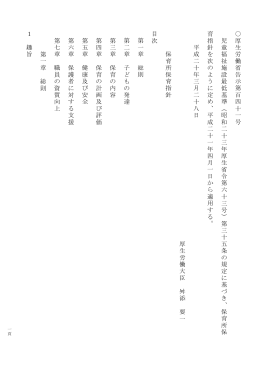 ○厚生労働省告示第百四十一号
児童福祉施設最低基準（昭和二十三年厚生省令第六十三号）第三十五条の規定に基づき、保育所保
育指針を次のように定め、平成二十一年四月一日から適用する。
平成二十年三月二十八日
厚生労働大臣　舛添　要一
保育所保育指針
目次
第一章　総則
第二章　子どもの発達
第三章　保育の内容
第四章　保育の計画及び評価
第五章　健康及び安全
第六章　保護者に対する支援
第七章　職員の資質向上
第一章　総則
１　趣旨